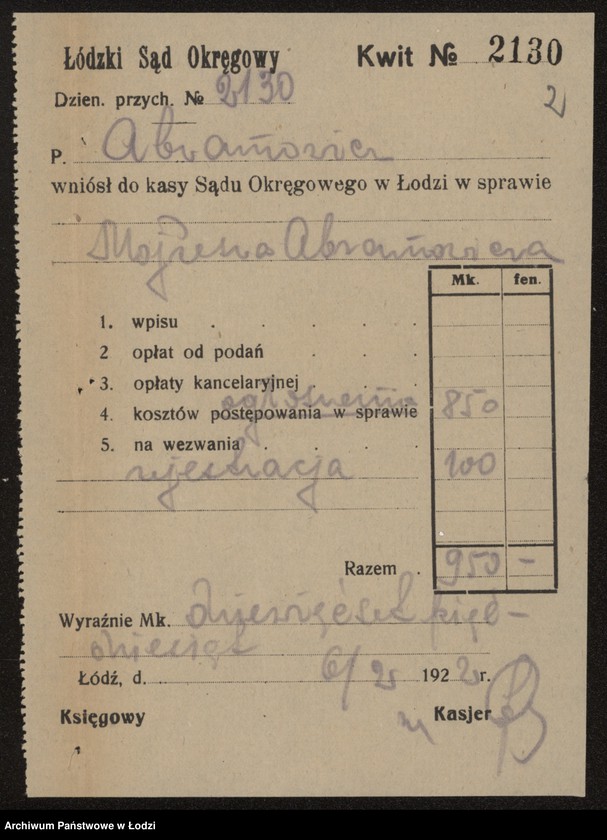 Łódzki Sąd Okręgowy Kwit № 2130
Dzien. przych. № 2130
2
P. Abramowicz
wniósł do kasy Sądu Okręgowego w Łodzi w sprawie
Mojżesza Abramowicza
Mk. fen.
1. wpisu . . . . .
2 opłat od podań . . .
3. opłaty kancelaryjnej . . .
ogłoszenia
4. kosztów postępowania w sprawie 850
5. na wezwania . . . .
rejestracja 100
Razem . 950 –
Wyraźnie Mk. dziewięćset pięć-
dziesiąt
Łódź, d. 6/2 1922 r.
Księgowy Kasjer
Archiwum Państwowe w Łodzi